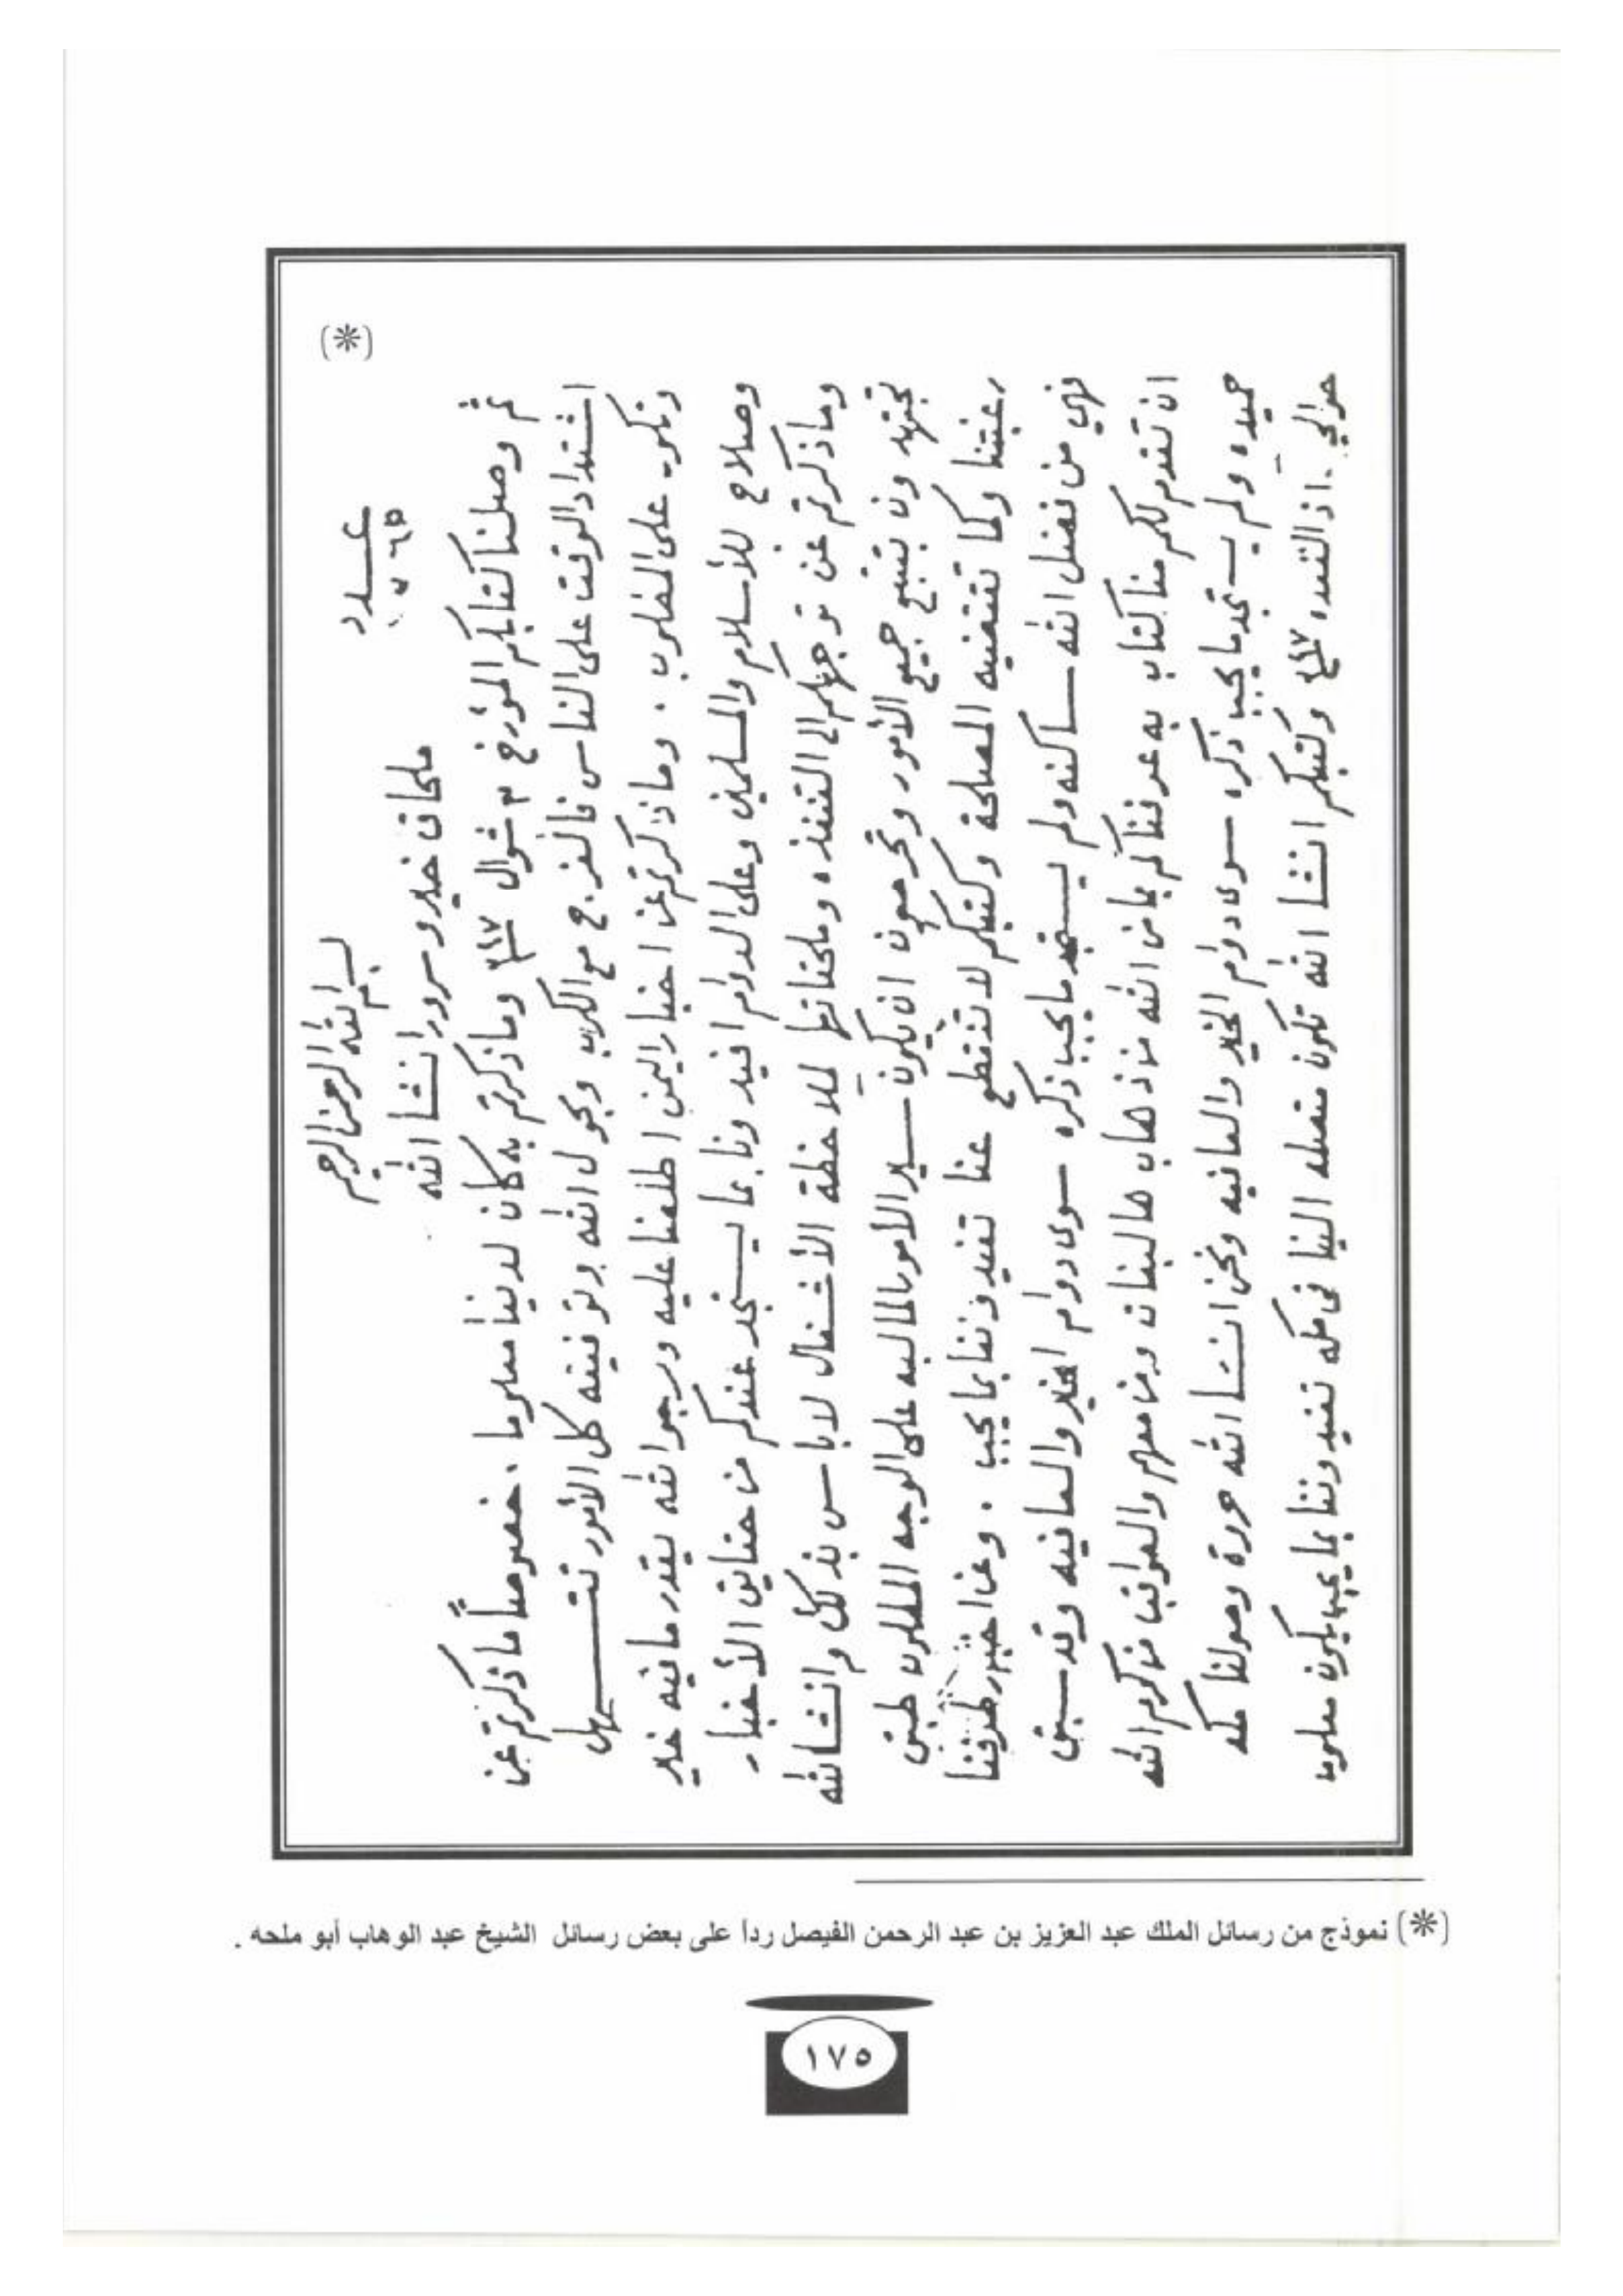 (*)
بسم الله الرحمن الرحيم
عدد
٧٦٥
ملحاق خير وسرور انشا الله
ثم وصلنا كتابكم المؤرخ ٣ شوال وما ذكرتم به كان لدينا معلوما . خصوصاً ما ذكرتم عن
اشتداد الوقت على الناس فالفرج مع الكرب وبحول الله وتوفيقه كل الأمور تتسهل
وتكون على المطلوب . وما ذكرتم عن اخبار اليمن اطلعنا عليه ونرجو الله يقدر ما فيه خير
وصلاح للأسلام والمسلمين وعلى الدوام افيدونا بما يستجد عندكم من حقايق الأخبار
وما ذكرتم عن توجهكم الى القنفذه وملحقاتها لملاحظة الأشغال لا باس بذلك وانشالله
تجتهدون بتتبع جميع الأمور وتحرصون ان يكون سير الأمور بالماليه على الوجه المطلوب طبق
رغبتنا وكما تقتضيه المصلحة وكتبكم لا تنقطع عنا تفيدوننا بما يجب . وعن اخبار طرفنا
فهي من فضل الله ساكنه ولم يستجد ما يجب ذكره سوى دوام الخير والعافيه وقد سبق
ان تقدم لكم منا كتاب به عرفناكم بما من الله من ذهاب هالبغاة ومن معهم والعواقب من كرم الله
حميده ولم يستجد ما يجب ذكره سوى دوام الخير والعافيه ونحن انشا الله حروة وصولنا مكه
حوالي اذ القعده وكتبكم انشا الله تكون متصله الينا في مكه تفيدوننا بما يجب يكون معلوما
(*) نموذج من رسائل الملك عبد العزيز بن عبد الرحمن الفيصل رداً على بعض رسائل الشيخ عبد الوهاب أبو ملحه .
١٧٥